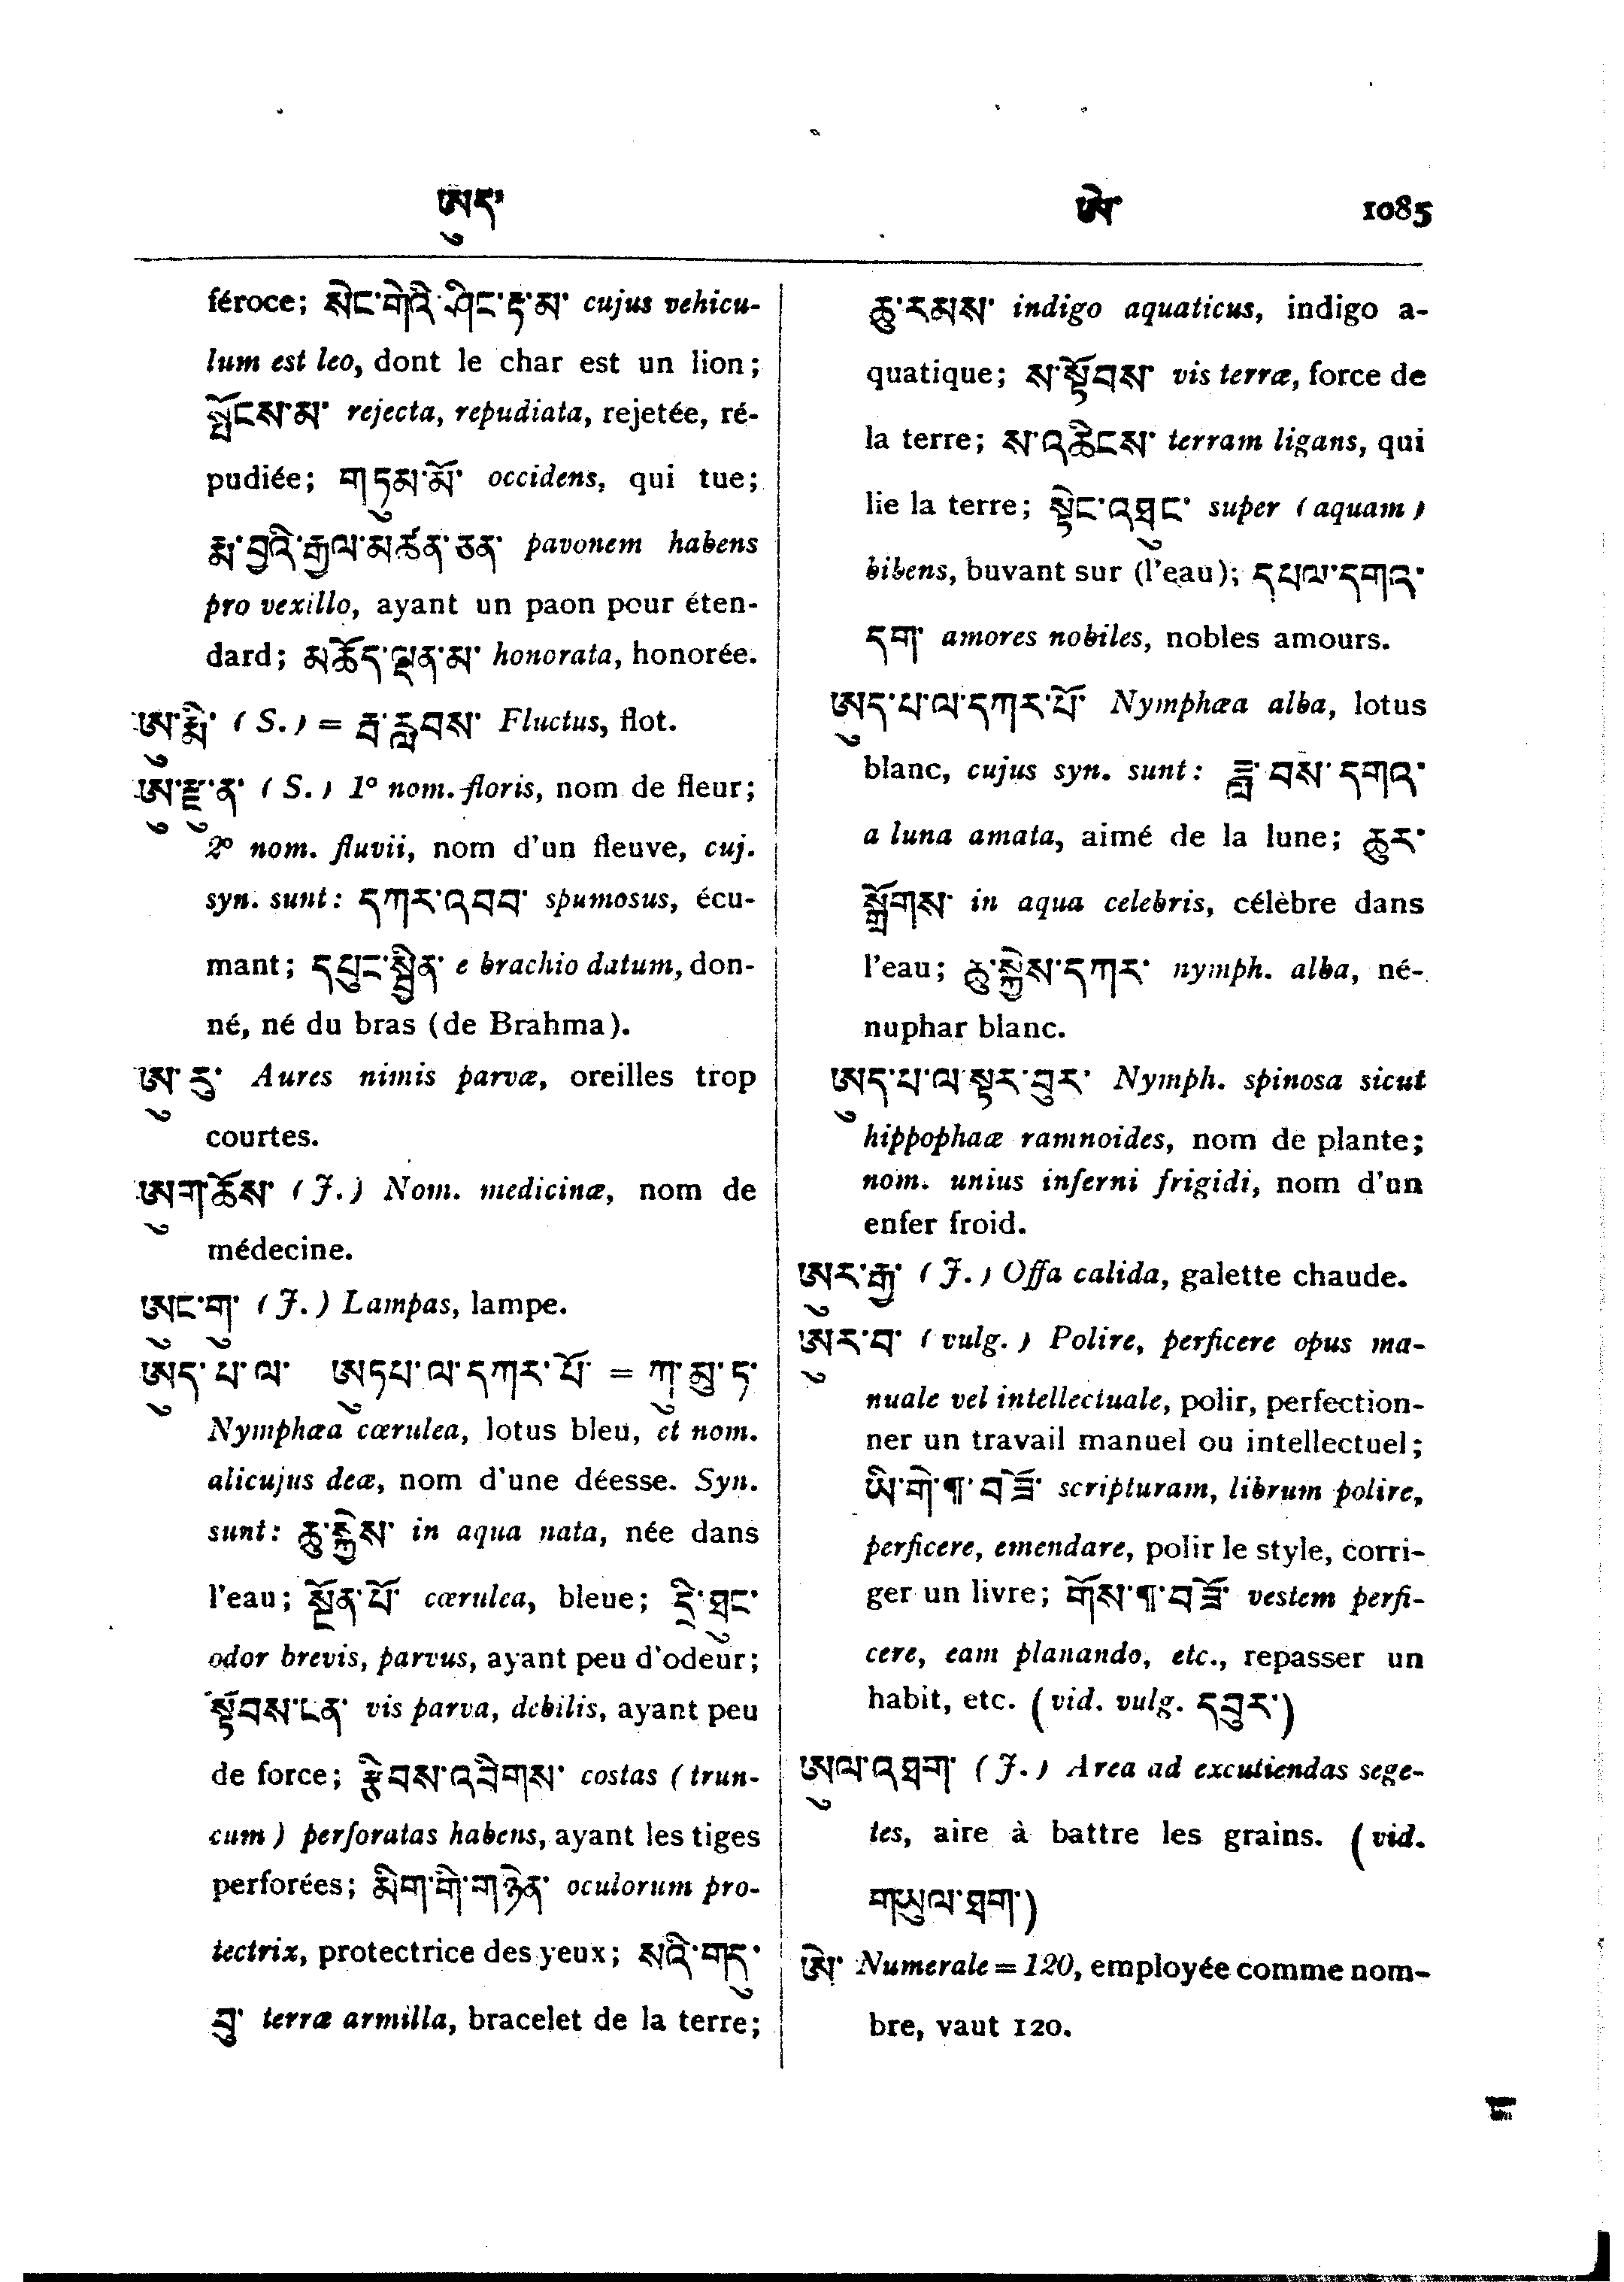 ཨུད་
ཨེ་ 1085
féroce; སེང་གེའི་ཤིང་རྟ་མ་ cujus vehicu-
lum est leo, dont le char est un lion;
སྤོངས་མ་ rejecta, repudiata, rejetée, ré-
pudiée; གཏུམ་མོ་ occidens, qui tue;
རྨ་བྱའི་རྒྱལ་མཚན་ཅན་ pavonem habens
pro vexillo, ayant un paon pour éten-
dard; མཆོད་ལྡན་མ་ honorata, honorée.
ཨུ་རྨི་ (S.) = རྦ་རླབས་ Fluctus, flot.
ཨུ་རྫུ་ན་ (S.) 1º nom. floris, nom de fleur;
2º nom. fluvii, nom d'un fleuve, cuj.
syn. sunt: དཀར་འབབ་ spumosus, écu-
mant; དཔུང་སྦྱིན་ e brachio datum, don-
né, né du bras (de Brahma).
ཨུ་རུ་ Aures nimis parvæ, oreilles trop
courtes.
ཨུག་ཆོས་ (J.) Nom. medicinæ, nom de
médecine.
ཨུང་གུ་ (J.) Lampas, lampe.
ཨུད་པ་ལ་ ཨུཏཔ་ལ་དཀར་པོ་ = ཀུ་མུ་ཏ་
Nymphæa cœrulea, lotus bleu, et nom.
alicujus deæ, nom d'une déesse. Syn.
sunt: ཆུ་སྐྱེས་ in aqua nata, née dans
l'eau; སྔོན་པོ་ cœrulea, bleue; དྲི་ཐུང་
odor brevis, parvus, ayant peu d'odeur;
སྟོབས་ངན་ vis parva, debilis, ayant peu
de force; རྩིབས་འབིགས་ costas (trun-
cum) perforatas habens, ayant les tiges
perforées; མིག་གི་གཉེན་ oculorum pro-
tectrix, protectrice des yeux; སའི་གདུ་
བུ་ terræ armilla, bracelet de la terre;
ཆུ་རམས་ indigo aquaticus, indigo a-
quatique; ས་སྟོབས་ vis terræ, force de
la terre; ས་འཆིངས་ terram ligans, qui
lie la terre; སྟེང་འཐུང་ super (aquam)
bibens, buvant sur (l'eau); དཔལ་དགའ་
དག་ amores nobiles, nobles amours.
ཨུད་པ་ལ་དཀར་པོ་ Nymphæa alba, lotus
blanc, cujus syn. sunt: ཟླ་བས་དགའ་
a luna amata, aimé de la lune; ཆུར་
སྒྲོགས་ in aqua celebris, célèbre dans
l'eau; ཆུ་སྐྱེས་དཀར་ nymph. alba, né-
nuphar blanc.
ཨུད་པ་ལ་སྟར་བུར་ Nymph. spinosa sicut
hippophaæ ramnoides, nom de plante;
nom. unius inferni frigidi, nom d'un
enfer froid.
ཨུར་རྒྱ་ (J.) Offa calida, galette chaude.
ཨུར་བ་ (vulg.) Polire, perficere opus ma-
nuale vel intellectuale, polir, perfection-
ner un travail manuel ou intellectuel;
ཡི་གེ་¶་བཟོ་ scripturam, librum polire,
perficere, emendare, polir le style, corri-
ger un livre; གོས་¶་བཟོ་ vestem perfi-
cere, eam planando, etc., repasser un
habit, etc. (vid. vulg. དབུར་)
ཨུལ་འཐག་ (J.) Area ad excutiendas sege-
tes, aire à battre les grains. (vid.
གཡུལ་ཐག་)
ཨེ་ Numerale = 120, employée comme nom-
bre, vaut 120.